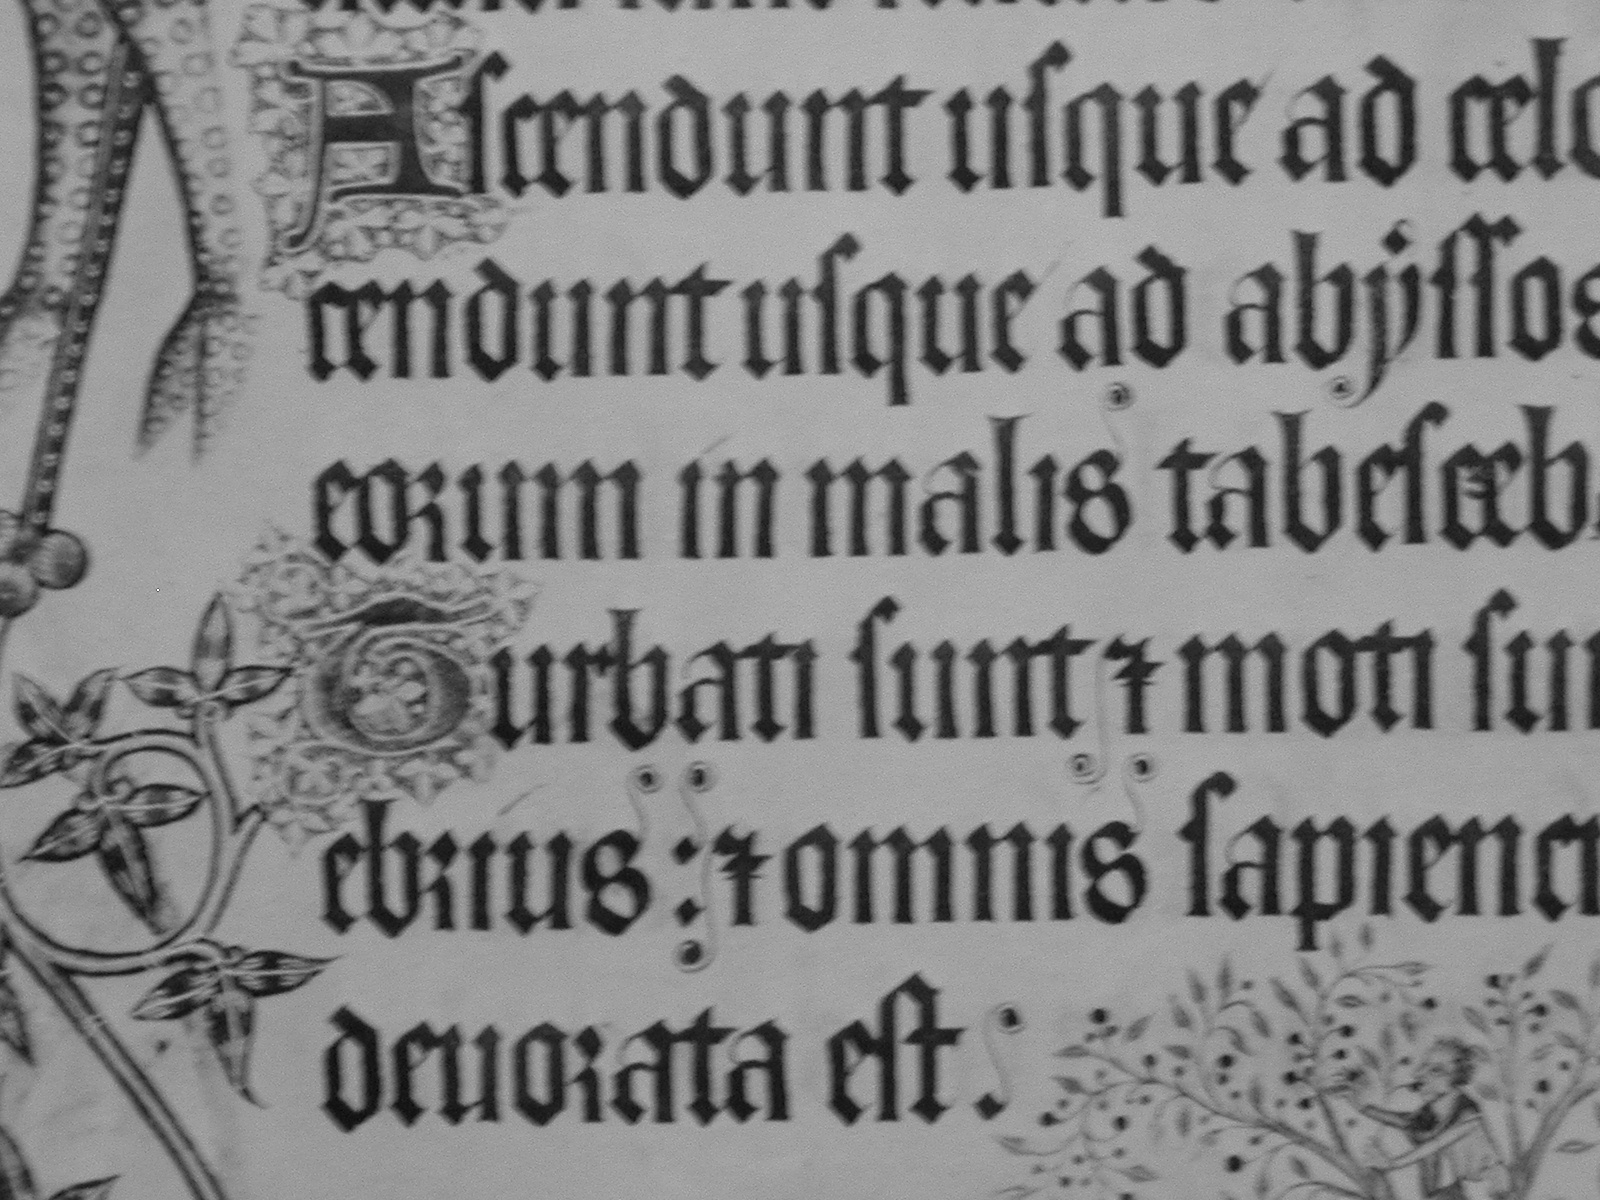 Ascendunt usque ad celo
cendunt usque ad abyssos
eorum in malis tabesceb
Turbati sunt ⁊ moti sun
ebrius : ⁊ omnis sapienci
deuorata est.